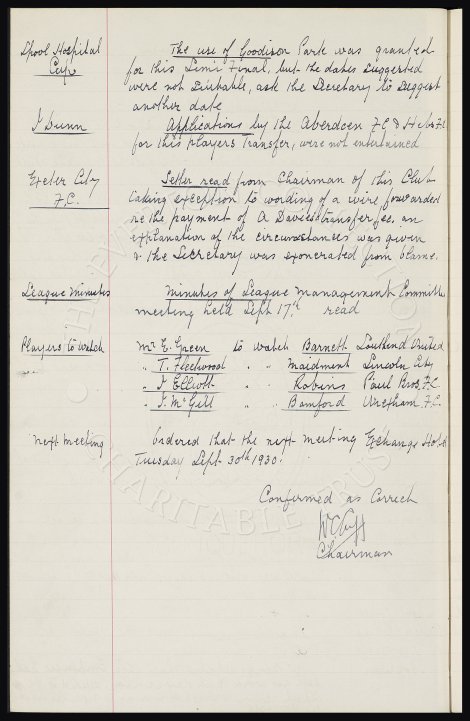 Lpool Hospital
Cup
The use of Goodison Park was granted
for this Semi Final, but the dates suggested
were not suitable, ask the Secretary to suggest
another date
J Dunn
Applications by the Aberdeen F.C & Hibs F.C
for this players transfer, were not entertained
Exeter City
F.C.
Letter read from Chairman of this Club
taking exception to wording of a wire forwarded
re the payment of A Davies transfer fee, an
explanation of the circumstances was given
& the Secretary was exonerated from blame.
League Minutes
Minutes of League Management Committee
meeting held Sept 17th read
Players to watch
Mr E. Green to watch Barnett Southend United
" T. Fleetwood " " Maidment Lincoln City
" J Elliott " Robins Paul Bros F.C.
" J. McGill " Bamford Wrexham F.C.
next meeting
Ordered that the next meeting Exchange Hotel
Tuesday Sept 30th 1930.
Confirmed as Correct
W C Cuff
Chairman
CHARITABLE TRUST